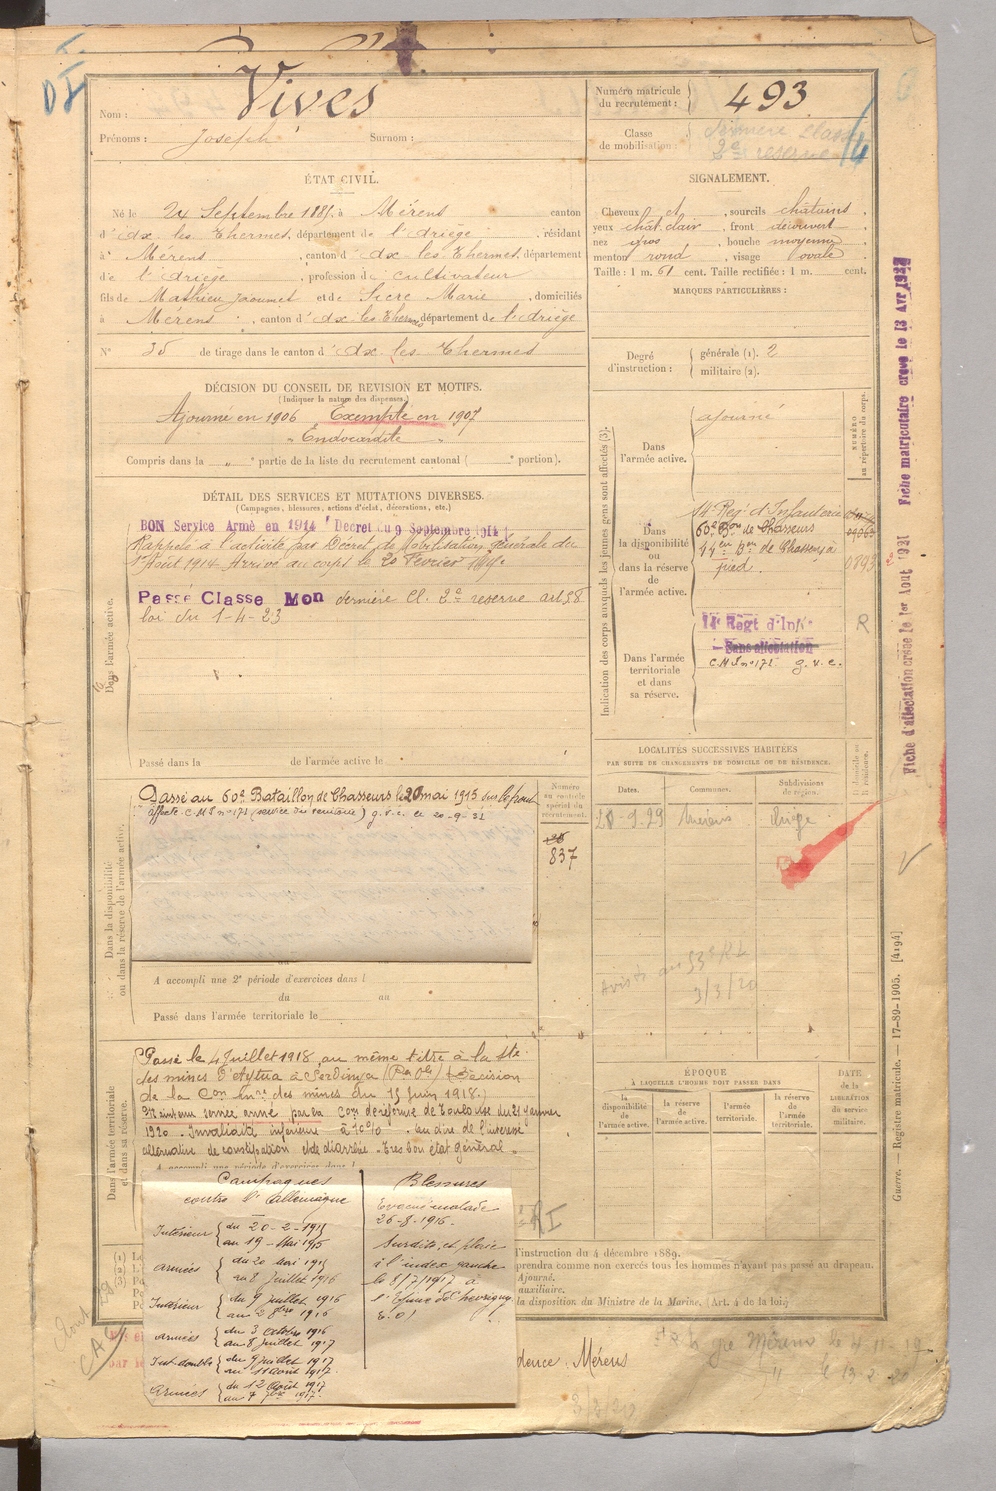 Nom : Vives
Prénoms : Joseph Surnom :
Numéro matricule du recrutement : 493
Classe de mobilisation : dernière classe
2e réserve
ÉTAT CIVIL.
Né le 24 Septembre 1885, à Mérens canton
d'Ax les Thermes, département de l'Ariège, résidant
à Mérens, canton d'Ax les Thermes, département
de l'Ariège, profession de cultivateur
fils de Mathieu Jaoumet et de Sicre Marie, domiciliés
à Mérens, canton d'Ax les Thermes, département de l'Ariège
N° 35 de tirage dans le canton d'Ax les Thermes
SIGNALEMENT.
Cheveux et, sourcils châtains,
yeux chât. clair, front découvert,
nez gros, bouche moyenne,
menton rond, visage ovale.
Taille : 1 m. 61 cent. Taille rectifiée : 1 m. cent.
MARQUES PARTICULIÈRES :
Degré d'instruction : générale (1). 2
militaire (2).
DÉCISION DU CONSEIL DE REVISION ET MOTIFS.
(Indiquer la nature des dispenses.)
Ajourné en 1906 Exempté en 1907
" Endocardite "
Compris dans la " e partie de la liste du recrutement cantonal ( e portion).
DÉTAIL DES SERVICES ET MUTATIONS DIVERSES.
(Campagnes, blessures, actions d'éclat, décorations, etc.)
BON Service Armé en 1914 Décret du 9 Septembre 1914
Rappelé à l'activité par Décret de Mobilisation générale du
1er Août 1914. Arrivé au corps le 20 Février 1915.
Passé Classe Mon dernière Cl. 2e réserve art 58
loi du 1-4-23
Dans l'armée active.
Passé dans la de l'armée active le
Indication des corps auxquels les jeunes gens sont affectés (3).
NUMÉRO au répertoire du corps.
Dans l'armée active.
ajourné
Dans la disponibilité ou dans la réserve de l'armée active.
14e Rég. d'Infanterie
60e Bon de Chasseurs
44em Bon de Chasseurs à
pied.
Dans l'armée territoriale et dans sa réserve.
14e Régt d'Inf.
Sans affectation
C M I n° 171 g. v. c.
R
LOCALITÉS SUCCESSIVES HABITÉES
PAR SUITE DE CHANGEMENTS DE DOMICILE OU DE RÉSIDENCE.
Dates. Communes. Subdivisions de région.
9-29 Mérens Ariège
Avisés au 53e
3/3/20
Dans la disponibilité ou dans la réserve de l'armée active.
Passé au 60e Bataillon de Chasseurs le 20 mai 1915 sur le front
affecté C.M.I n° 171 g. v. c. le 20-9-32
Numéro au contrôle spécial du recrutement.
837
A accompli une 2e période d'exercices dans l
du au
Passé dans l'armée territoriale le
Dans l'armée territoriale et dans sa réserve.
Passé le 4 Juillet 1918, au même titre à la Sté
des mines d'Aytua à Serdinya (Pes Oles) (Décision
de la Con du 15 Juin 1918.)
Maintenu service armé par la Con de réforme de Toulouse du 21 Janvier
1920. Invalidité inférieure à 10% au dire de l'intéressé
alternative de constipation et de diarrhée. Très bon état général.
A accompli une période d'exercices dans l
ÉPOQUE
À LAQUELLE L'HOMME DOIT PASSER DANS
la disponibilité de l'armée active.
la réserve de l'armée active.
l'armée territoriale.
la réserve de l'armée territoriale.
DATE de la LIBÉRATION du service militaire.
Campagnes
contre l'Allemagne
Intérieur du 20-2-1915
au 19 Mai 1915
Armées du 20 Mai 1915
au 8 Juillet 1916
Intérieur du 9 Juillet 1916
au 2 8bre 1916
Armées du 3 Octobre 1916
au 8 Juillet 1917
Int. double du 9 Juillet 1917
au 11 Août 1917.
Armées du 12 Août 1917
au 7 1917.
Blessures
Evacué malade
26-8-1916.
Surdité, et plaie
à l'index gauche
le 8/7/1917 à
RI
l'instruction du 4 décembre 1889.
prendra comme non exercés tous les hommes n'ayant pas passé au drapeau.
Ajourné.
auxiliaire.
la disposition du Ministre de la Marine. (Art. 4 de la loi.)
dence : Mérens
Mérens le 4-11-19
3/3/20
Fiche matriculaire créée le 13 Avr 1927
Fiche d'affectation créée le 1er Août 1921
Guerre. — Registre matricule. — 17-89-1905. [4194]